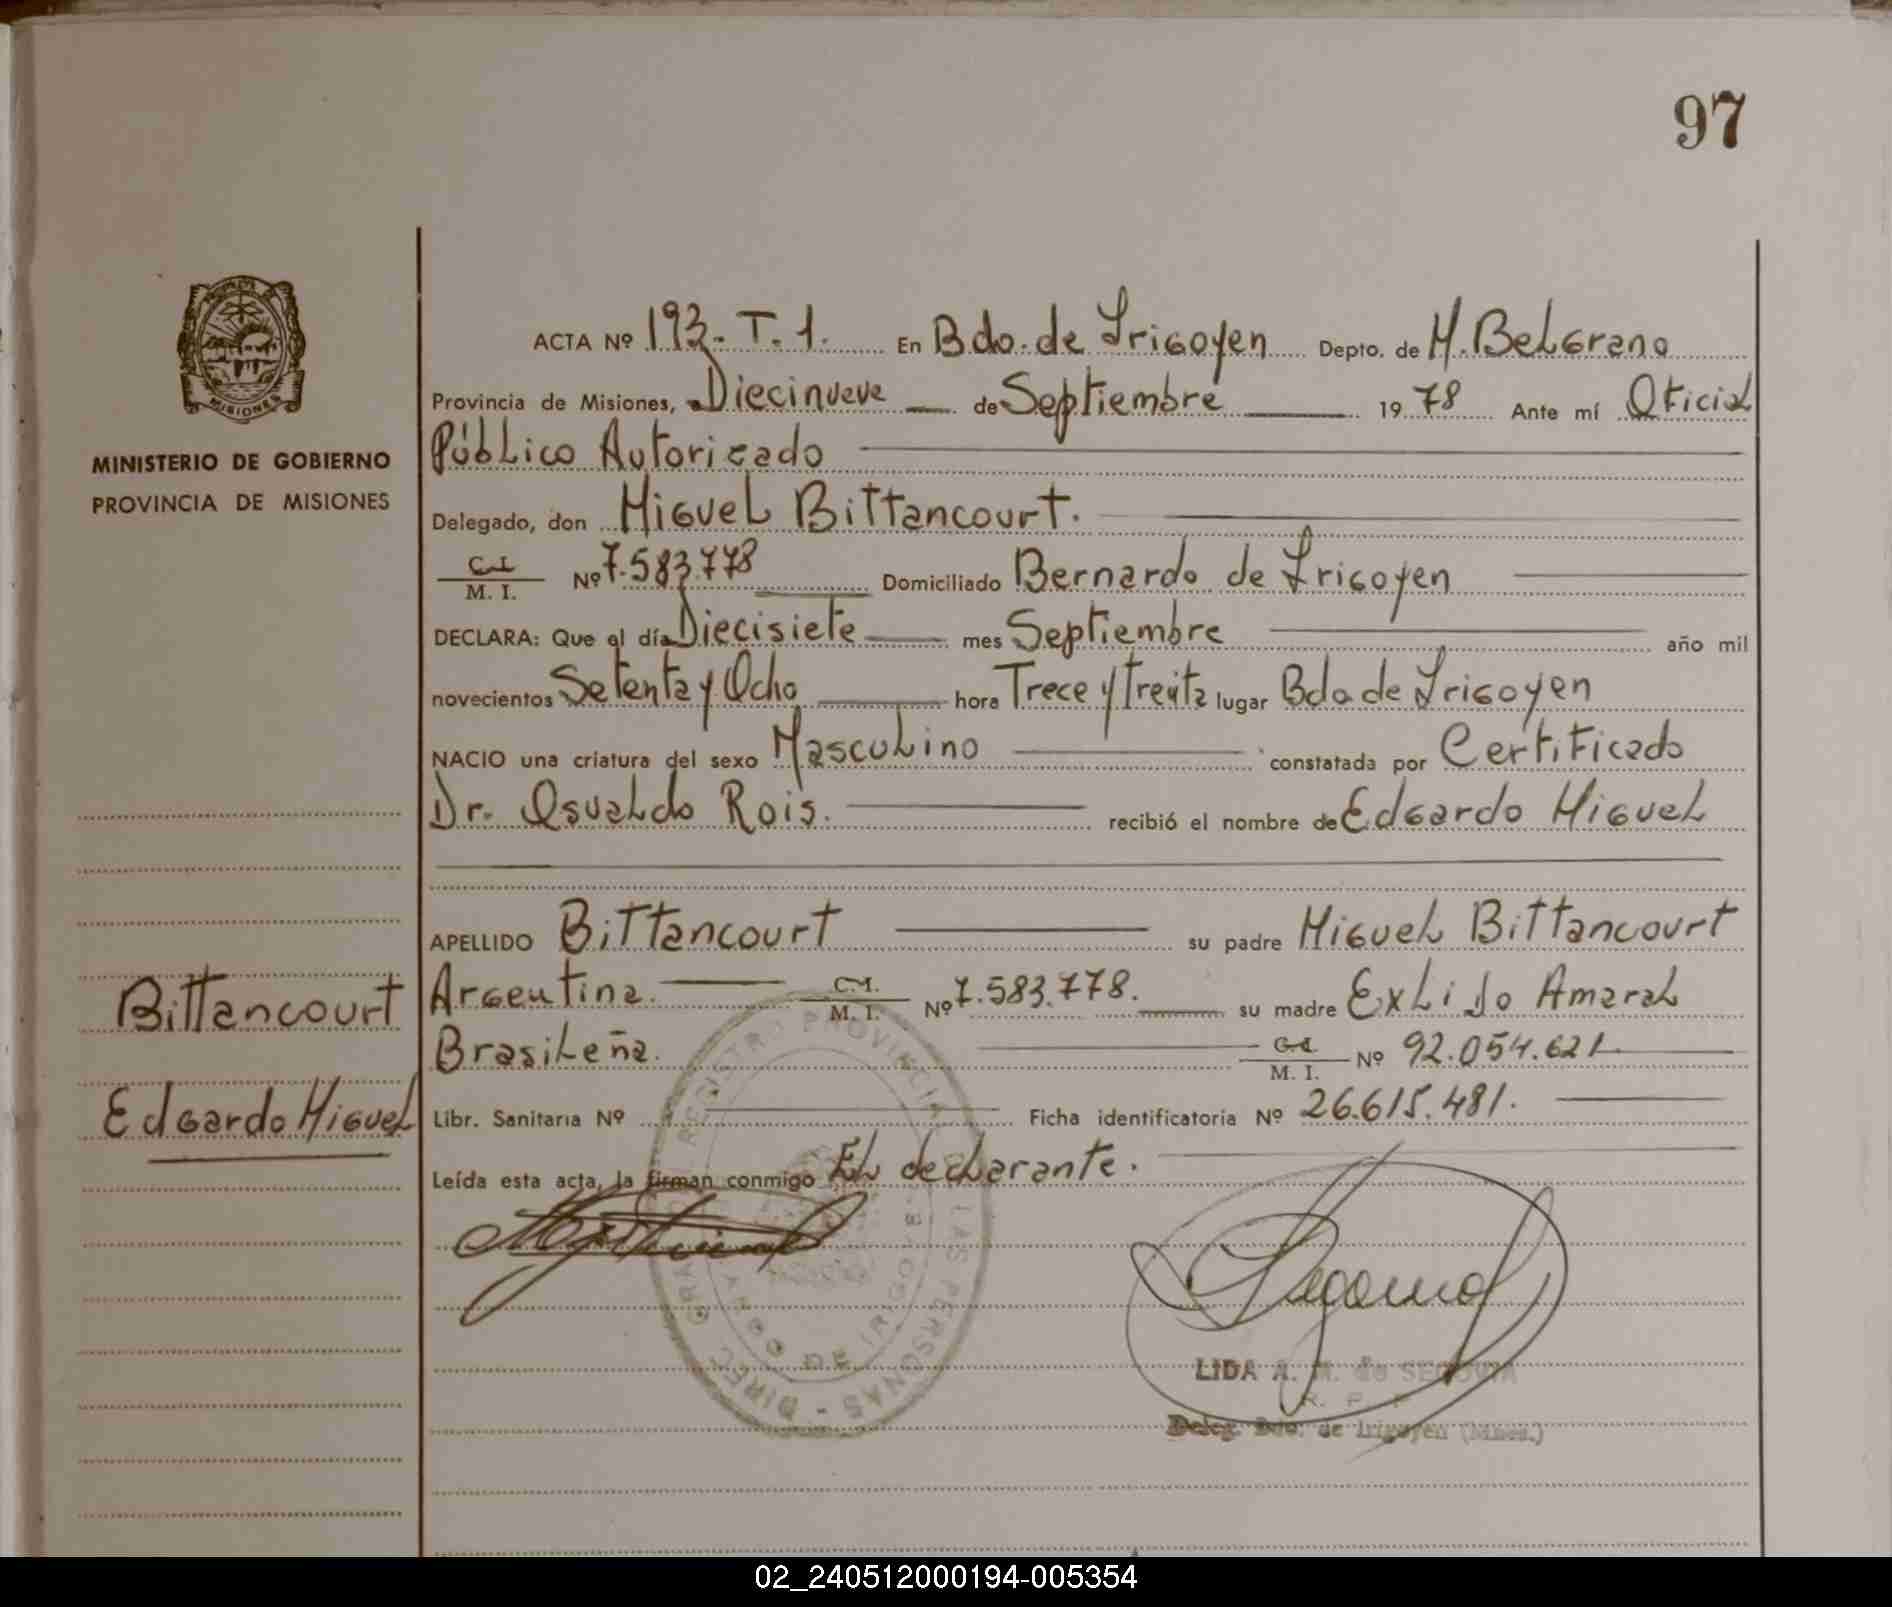 97
ACTA Nº 193-T.1. En Bdo. de Irigoyen Depto. de M. Belgrano
Provincia de Misiones, Diecinueve de Septiembre 1978 Ante mí Oficial
MINISTERIO DE GOBIERNO
PROVINCIA DE MISIONES
Público Autorizado
Delegado, don Miguel Bittancourt.
C.I. M. I. Nº 7.583.778 Domiciliado Bernardo de Irigoyen
DECLARA: Que el día Diecisiete mes Septiembre año mil
novecientos Setenta y Ocho hora Trece y treita lugar Bdo de Irigoyen
NACIO una criatura del sexo Masculino constatada por Certificado
Dr. Osvaldo Rois. recibió el nombre de Edgardo Miguel
APELLIDO Bittancourt su padre Miguel Bittancourt
Argentina. C.I. M. I. Nº 7.583.778. su madre Amaral
Brasileña. C.I. M. I. Nº 92.054.621
Bittancourt
Edgardo Miguel
Libr. Sanitaria Nº Ficha identificatoria Nº 26.615.481.
Leída esta acta, la firman conmigo El declarante.
REGISTRO PROVINCIAL DE LAS PERSONAS - DIREC. GRAL.
DE IRIGOYEN
LIDA A. M. de SEGOVIA
Deleg. Bdo. de Irigoyen (Mnes.)
MISIONES
02_240512000194-005354